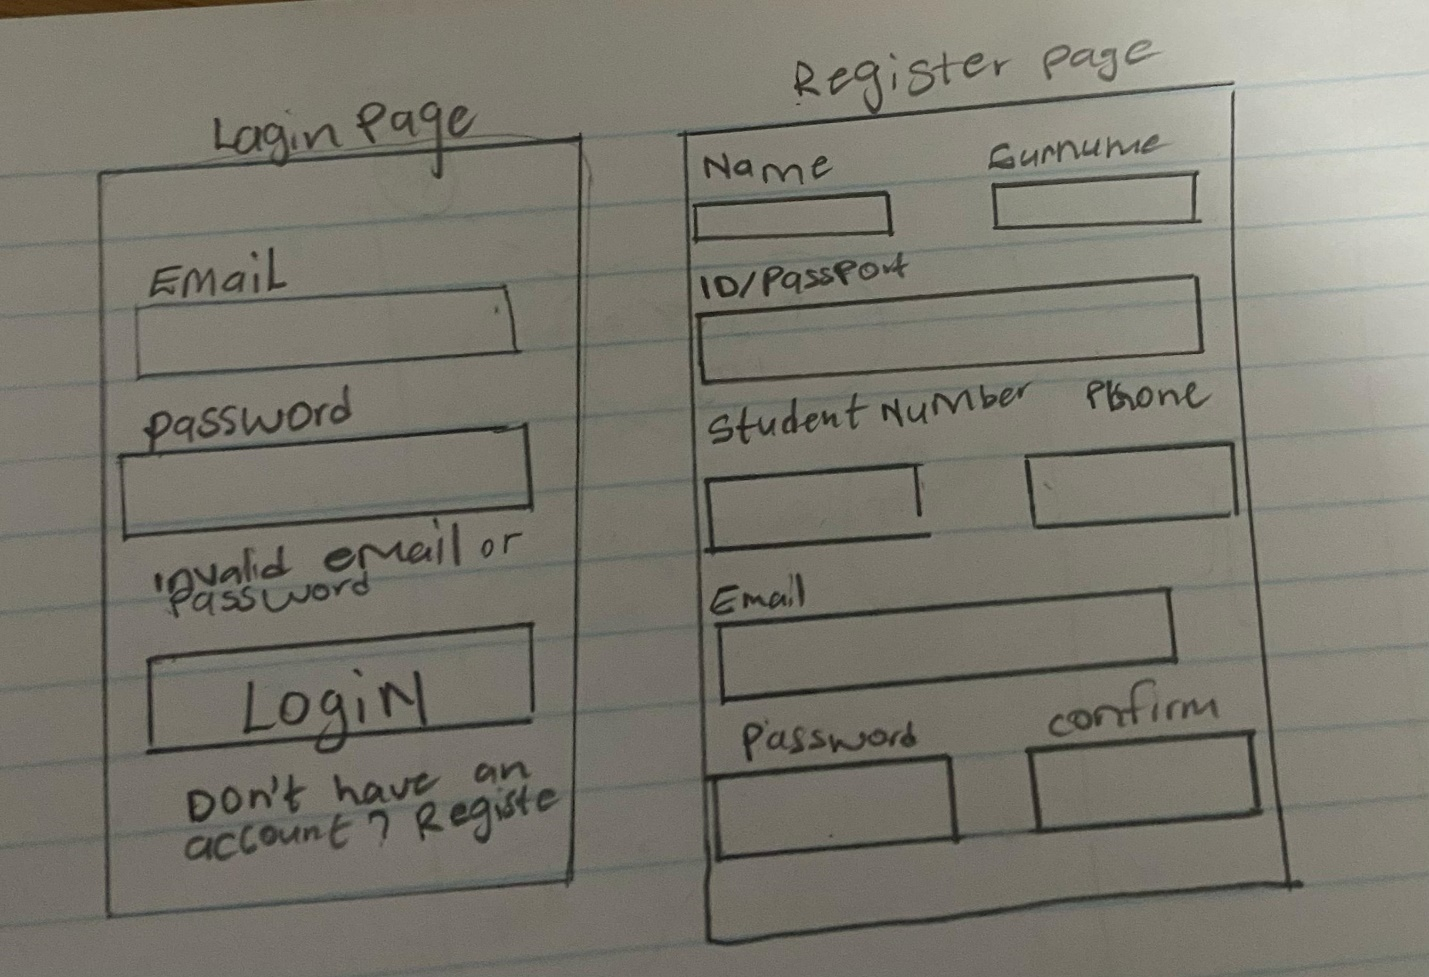 Login Page
Email
Password
invalid email or
Password
Login
Don't have an
account? Registe
Register page
Name Surnume
ID/Passport
Student Number Phone
Email
Password confirm